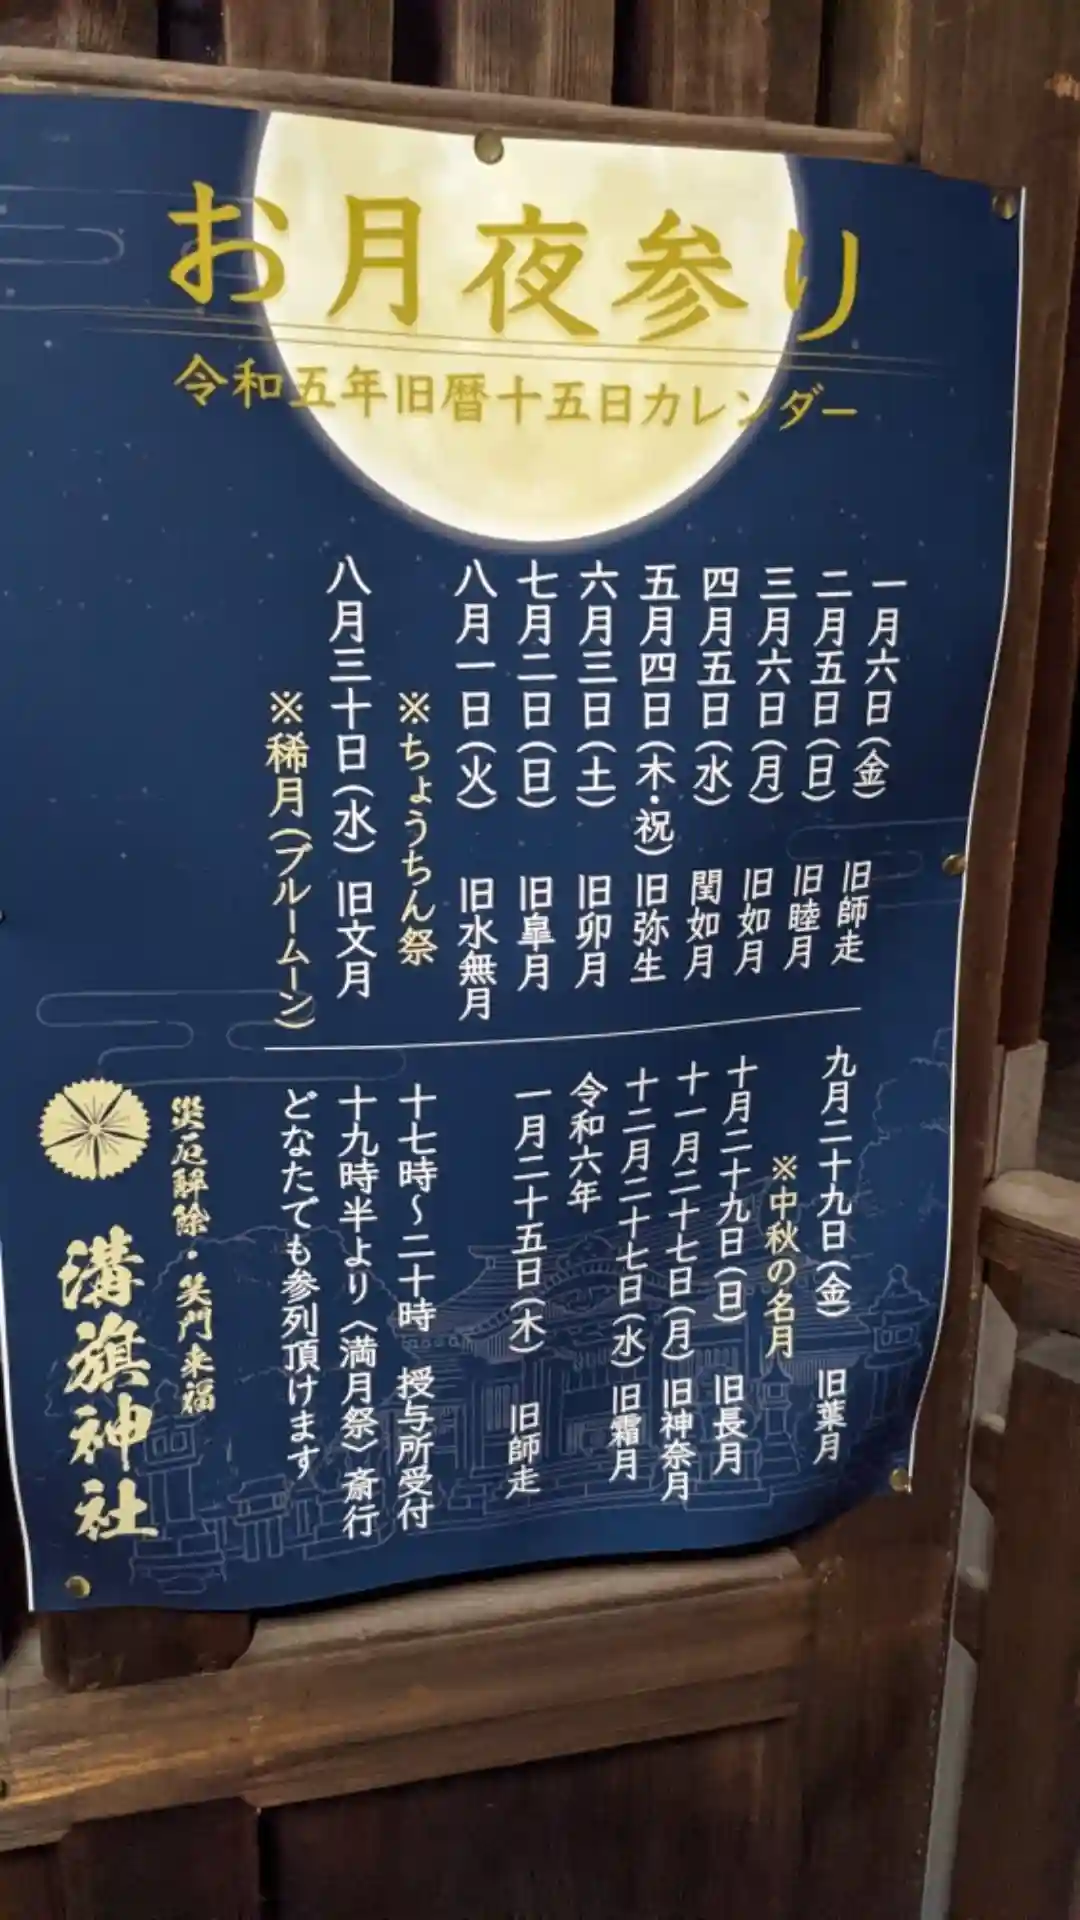 お月夜参り
令和五年旧暦十五日カレンダー
一月六日(金) 旧師走
二月五日(日) 旧睦月
三月六日(月) 旧如月
四月五日(水) 閏如月
五月四日(木・祝) 旧弥生
六月三日(土) 旧卯月
七月二日(日) 旧皐月
八月一日(火) 旧水無月
※ちょうちん祭
八月三十日(水) 旧文月
※稀月(ブルームーン)
九月二十九日(金) 旧葉月
※中秋の名月
十月二十九日(日) 旧長月
十一月二十七日(月) 旧神奈月
十二月二十七日(水) 旧霜月
令和六年
一月二十五日(木) 旧師走
十七時〜二十時 授与所受付
十九時半より〈満月祭〉斎行
どなたでも参列頂けます
災厄解除・笑門来福
溝旗神社